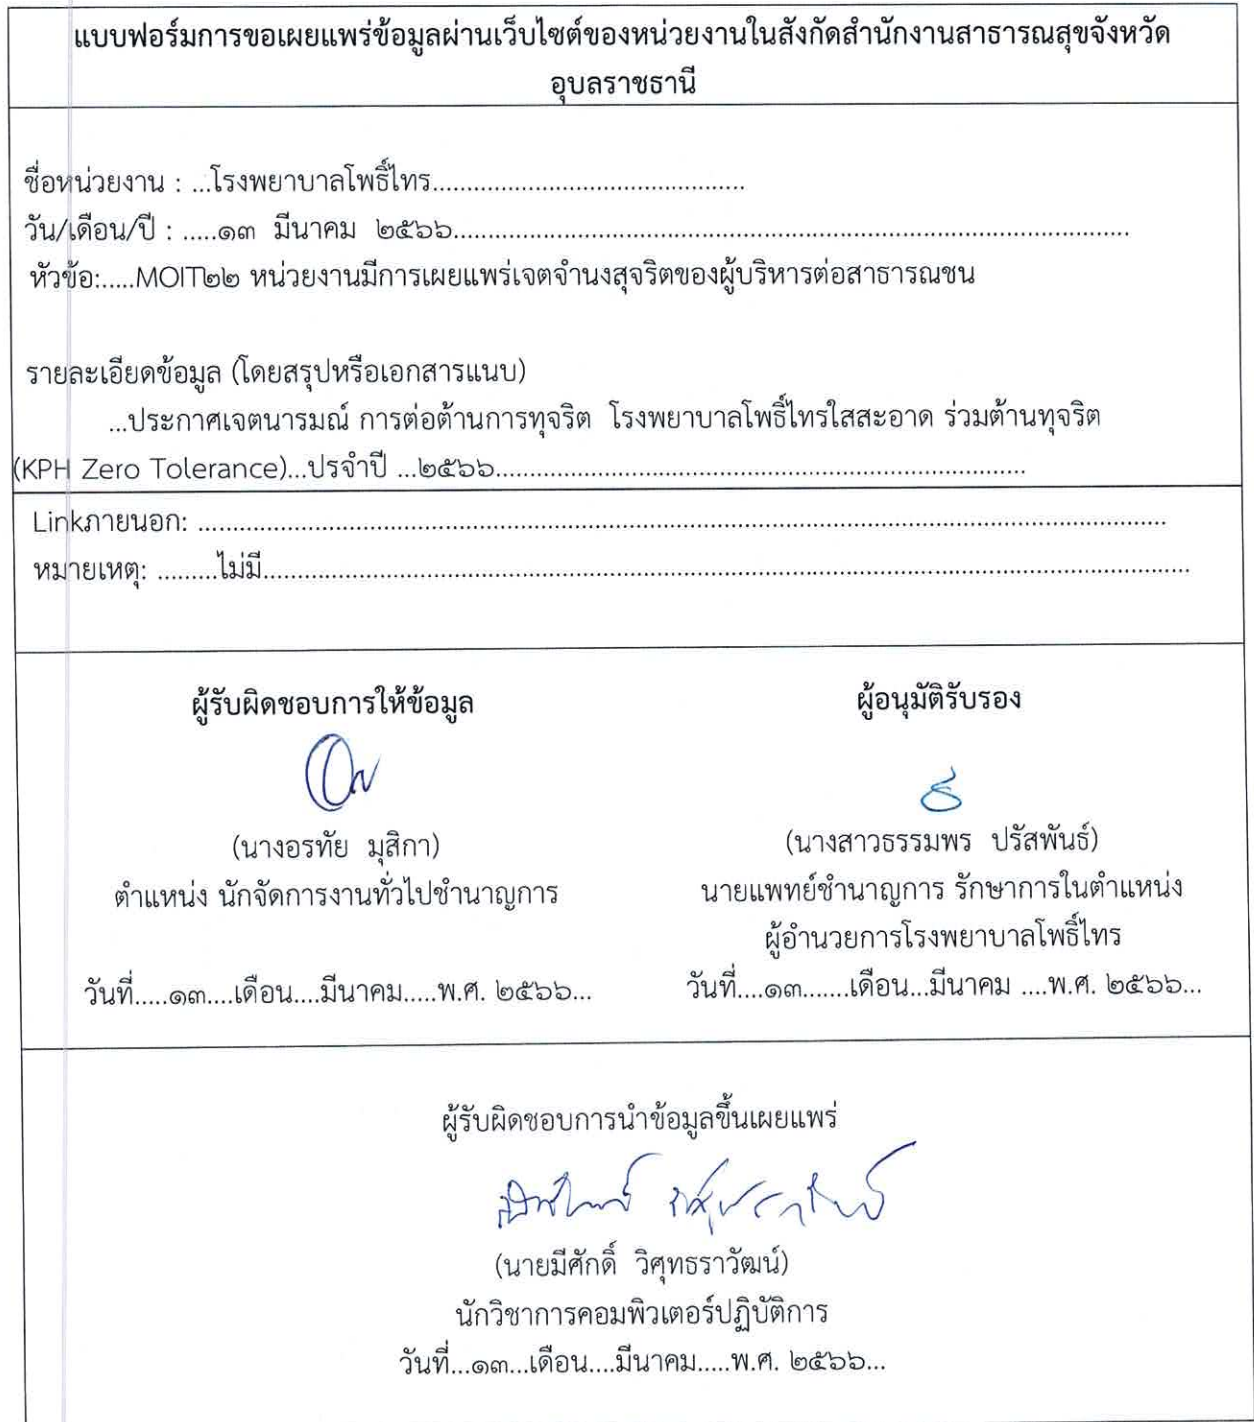 แบบฟอร์มการขอเผยแพร่ข้อมูลผ่านเว็บไซต์ของหน่วยงานในสังกัดสำนักงานสาธารณสุขจังหวัด
อุบลราชธานี
ชื่อหน่วยงาน : ...โรงพยาบาลโพธิ์ไทร..............................................
วัน/เดือน/ปี : .....๑๓ มีนาคม ๒๕๖๖....................................................................................................
หัวข้อ:.....MOIT๒๒ หน่วยงานมีการเผยแพร่เจตจำนงสุจริตของผู้บริหารต่อสาธารณชน
รายละเอียดข้อมูล (โดยสรุปหรือเอกสารแนบ)
...ประกาศเจตนารมณ์ การต่อต้านการทุจริต โรงพยาบาลโพธิ์ไทรใสสะอาด ร่วมต้านทุจริต
(KPH Zero Tolerance)...ปรจำปี ...๒๕๖๖...............................................................................
Linkภายนอก: ................................................................................................................................................
หมายเหตุ: .........ไม่มี..........................................................................................................................................
ผู้รับผิดชอบการให้ข้อมูล
(นางอรทัย มุสิกา)
ตำแหน่ง นักจัดการงานทั่วไปชำนาญการ
วันที่.....๑๓....เดือน....มีนาคม.....พ.ศ. ๒๕๖๖...
ผู้อนุมัติรับรอง
(นางสาวธรรมพร ปรัสพันธ์)
นายแพทย์ชำนาญการ รักษาการในตำแหน่ง
ผู้อำนวยการโรงพยาบาลโพธิ์ไทร
วันที่....๑๓.......เดือน...มีนาคม ....พ.ศ. ๒๕๖๖...
ผู้รับผิดชอบการนำข้อมูลขึ้นเผยแพร่
(นายมีศักดิ์ วิศุทธราวัฒน์)
นักวิชาการคอมพิวเตอร์ปฏิบัติการ
วันที่...๑๓...เดือน....มีนาคม.....พ.ศ. ๒๕๖๖...